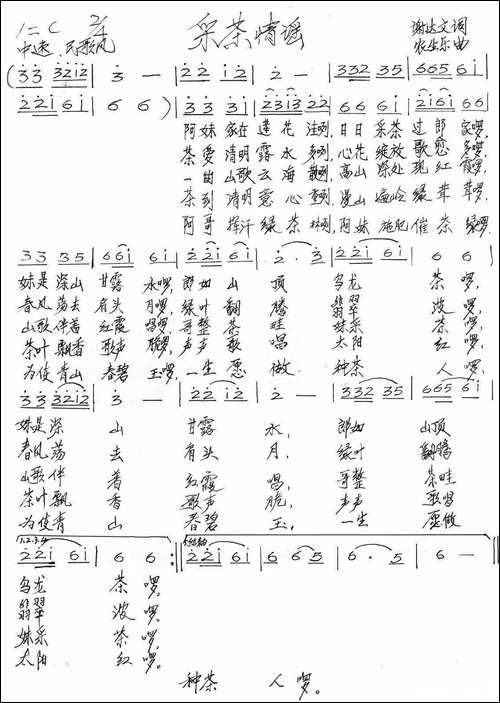 1=C 2/4 采茶情谣 谢达文 词
中速 民歌风 农生乐 曲
(3̇3̇ 3̇2̇1̇2̇ | 3̇ — | 2̇2̇ 1̇2̇ | 2̇ — | 332 35 | 665 61̇ |
2̇2̇1̇ 61̇ | 6 6 ) | 3̇3̇ 3̇1̇ | 2̇3̇1̇3̇ 2̇2̇ | 66 61̇ | 2̇1̇61̇ 66 |
阿妹 家在 莲花 洼啊, 日日 采茶 过郎 家啰,
茶爱 清明 露水 多啊, 心花 绽放 歌愈 多啰,
一曲 山歌 云海 散啊, 高山 深处 现红 霞啰,
茶到 清明 意心 查啊, 漫山 遍岭 绿茸 茸啰,
阿哥 挥汗 绿茶 林啊, 阿妹 施肥 催茶 绿啰,
33 35 | 661̇ 61̇ | 2̇2̇ 1̇2̇ | 2̇· 3̇ | 2̇2̇1̇ 61̇ | 6 6 |
妹是 深山 甘露 水啰, 郎如 山顶 乌龙 茶啰,
春风 荡去 有头 月啰, 绿叶 翻腾 翡翠 波啰,
山歌 伴着 红霞 唱啰, 哥整 茶畦 妹采 茶啰,
茶叶 飘香 歌声 脆啰, 声声 歌唱 太阳 红啰,
为使 青山 春碧 玉啰, 一生 愿做 种茶 人啰,
3̇3̇ 3̇2̇1̇2̇ | 3̇ — | 2̇2̇ 1̇2̇ | 2̇ — | 332 35 | 665 61̇ |
妹是深 山 甘露 水, 郎如 山顶
春风荡 去 有头 月, 绿叶 翻腾
山歌伴 着 红霞 唱, 哥整 茶畦
茶叶飘 香 歌声 脆, 声声 歌唱
为使青 山 春碧 玉, 一生 愿做
1.2.3.4.
2̇2̇1̇ 61̇ | 6 6 :‖ 2̇2̇1̇ 61̇ | 6 65 | 6· 5 | 6 — |
乌龙 茶 啰。
翡翠 波 啰。
妹采 茶 啰。
太阳 红 啰。
种茶 人 啰。